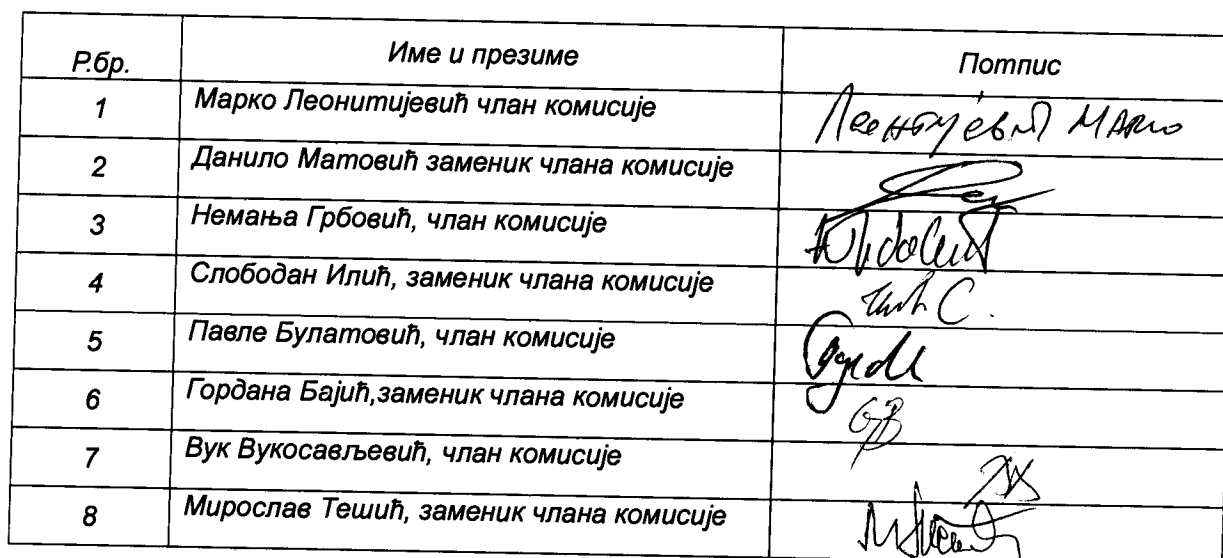 Р.бр. Име и презиме Потпис
1 Марко Леонитијевић члан комисије Леонтијевић Марко
2 Данило Матовић заменик члана комисије
3 Немања Грбовић, члан комисије
4 Слободан Илић, заменик члана комисије Илић С.
5 Павле Булатовић, члан комисије
6 Гордана Бајић,заменик члана комисије GB
7 Вук Вукосављевић, члан комисије
8 Мирослав Тешић, заменик члана комисије